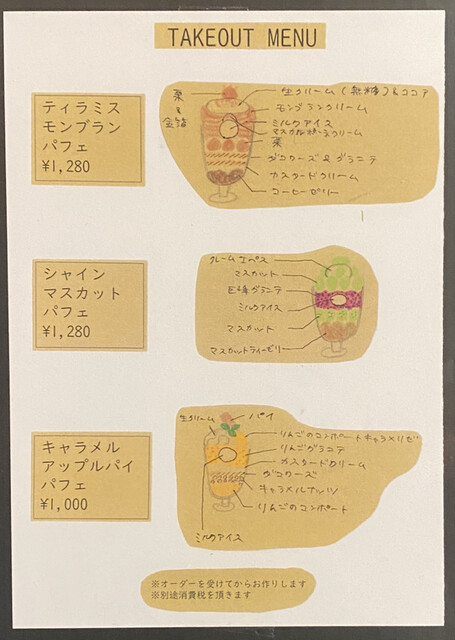 TAKEOUT MENU
ティラミス
モンブラン
パフェ
¥1,280
栗
&
金箔
生クリーム(無糖)&ココア
モンブランクリーム
ミルクアイス
マスカルポーネクリーム
栗
ダコワーズ&グラニテ
カスタードクリーム
コーヒーゼリー
シャイン
マスカット
パフェ
¥1,280
クレームエペス
マスカット
巨峰グラニテ
ミルクアイス
マスカット
マスカットティーゼリー
キャラメル
アップルパイ
パフェ
¥1,000
生クリーム
パイ
りんごのコンポートキャラメリゼ
りんごグラニテ
カスタードクリーム
ダコワーズ
キャラメルナッツ
りんごのコンポート
ミルクアイス
※オーダーを受けてからお作りします
※別途消費税を頂きます